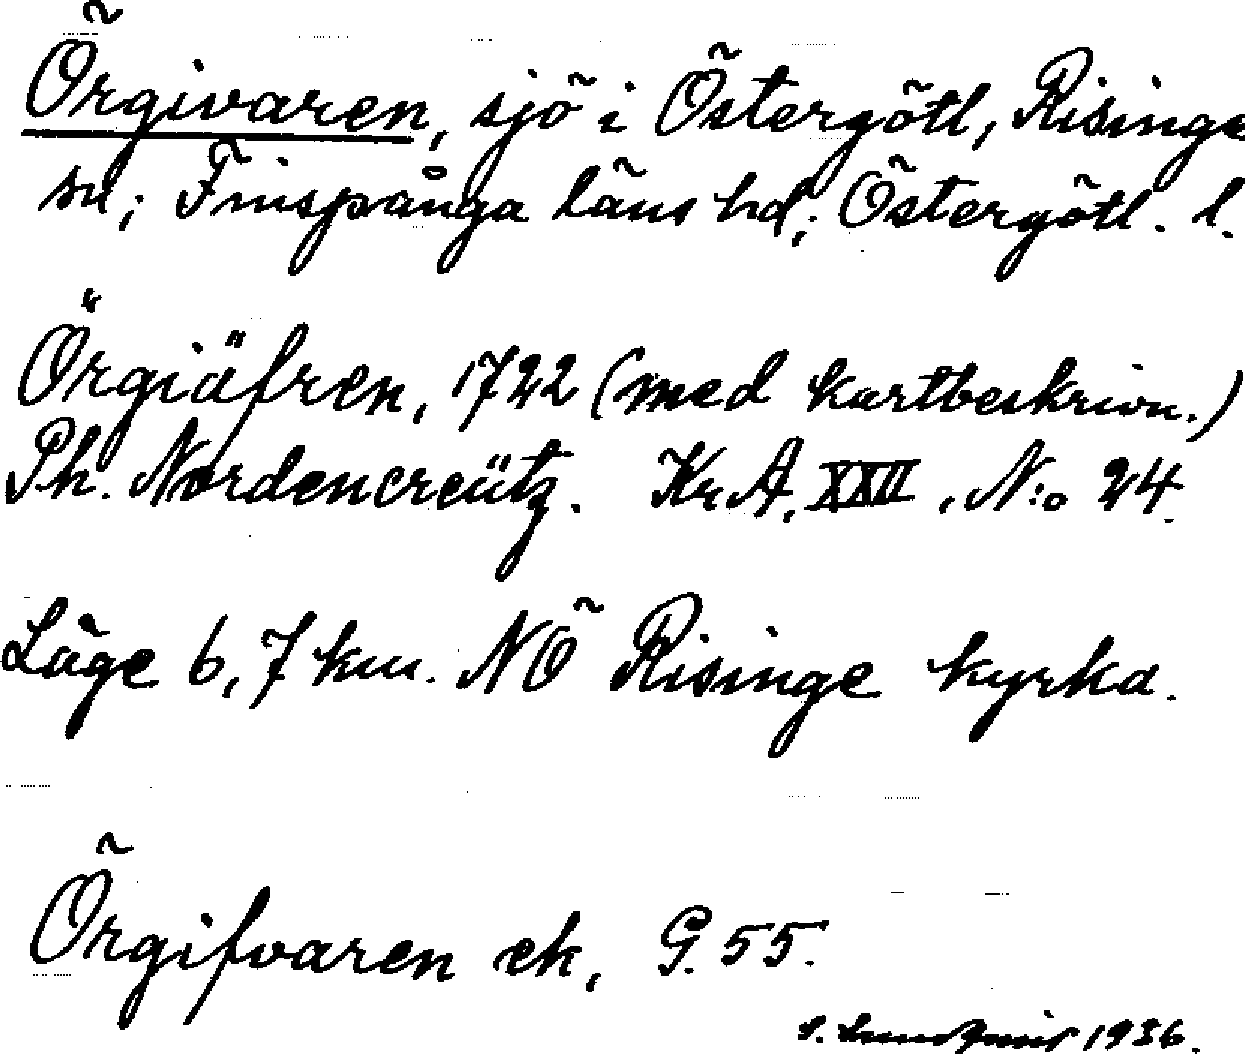 Örgivaren, sjö i Östergötl, Risinge
sn; Finspånga läns hd; Östergötl. l.
Örgiäfren, 1722 (med kartbeskrivn.)
Ph. Nordencreütz. Kr.A. XXII, N:o 24.
Läge 6,7 km. NÖ Risinge kyrka.
Örgifvaren ek, G. 55.
S. Lundqvist 1936.